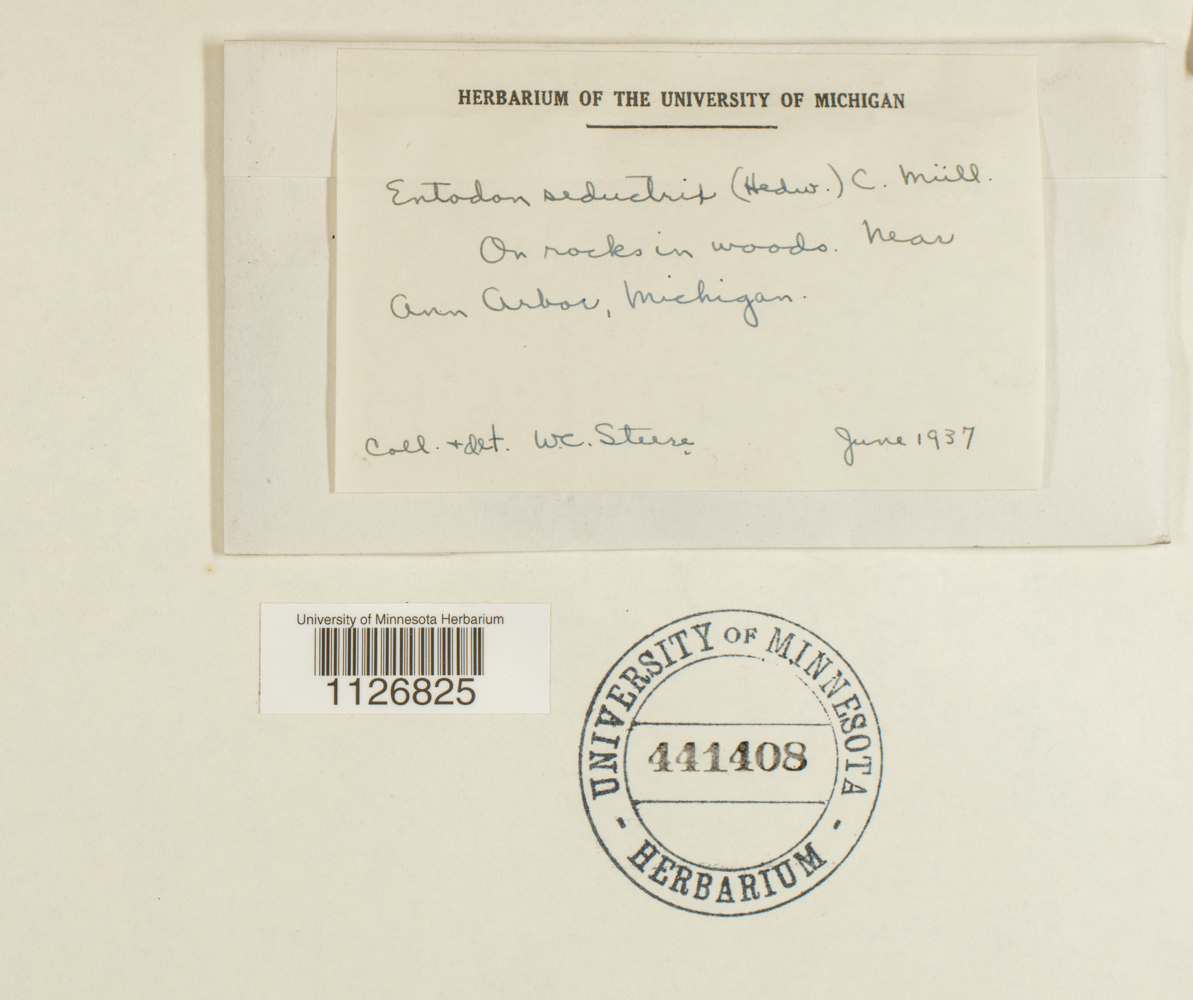 HERBARIUM OF THE UNIVERSITY OF MICHIGAN
Entodon seductrix (Hedw.) C. Müll.
On rocks in woods. Near
Ann Arbor, Michigan.
Coll. + det. W.C. Steere
June 1937
University of Minnesota Herbarium
1126825
UNIVERSITY OF MINNESOTA
441408
- HERBARIUM -